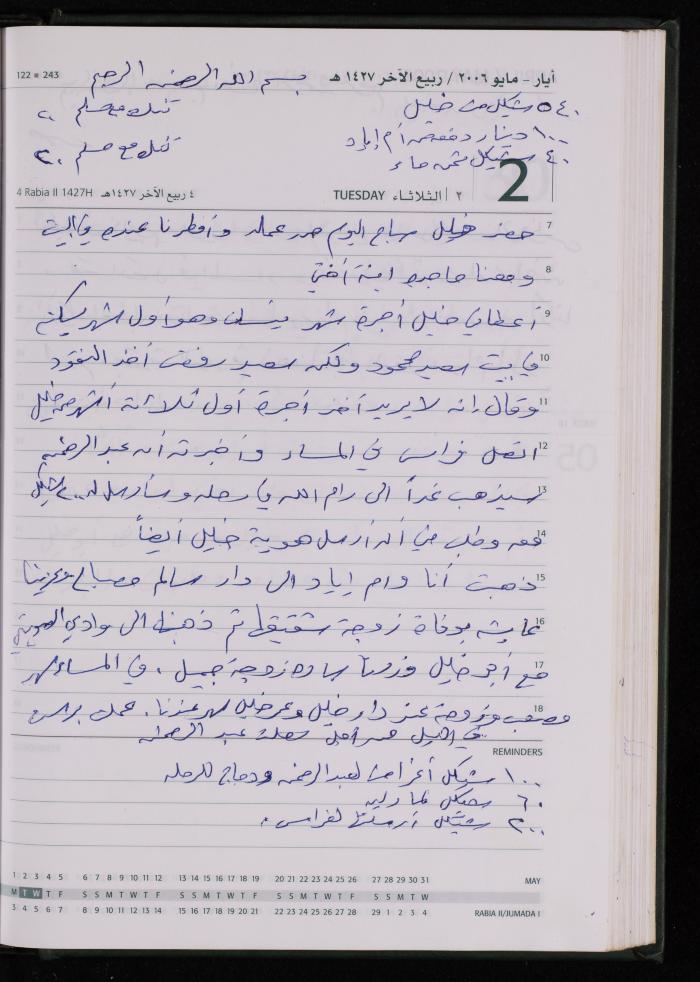 122 ■ 243
أيار - مايو ٢٠٠٦ / ربيع الآخر ١٤٢٧ هـ
بسم الله الرحمن الرحيم
٥٤٠ شيكل من خليل
تنك مع مسلم ٢٠
١٠٠ دينار دفعة من أم إياد
تنك مع مسلم ٢٠
٤٠ شيكل ثمن ماء
2
4 Rabia II 1427H ٤ ربيع الآخر ١٤٢٧هـ
TUESDAY الثلاثاء ٢
7 حضر خليل صباح اليوم من عمله وأفطرنا عنده في البيت
8 ومعنا ماجده ابنة أختي
9 أعطاني خليل أجرة شهر نيسان وهو أول شهر يسكنه
10 في بيت سعيد محمود ولكن سعيد رفض أخذ النقود
11 وقال إنه لا يريد أخذ أجرة أول ثلاثة أشهر من خليل
12 اتصل فراس في المساء وأخبرته أن عبد الرحمن
13 سيذهب غداً الى رام الله في رحله وسأرسل له ٢٠٠ شيكل
14 معه وطلب مني أن أرسل هوية خليل أيضاً
15 ذهبت أنا وأم إياد الى دار سالم مصباح وعزينا
16 عايشه بوفاة زوجة شقيقها ثم ذهبنا الى وادي
17 مع أبو خليل وزرنا زوجة جميل. في المساء سهر
18 مصعب وزوجة عند دار خليل وعمر خليل سهر عندنا.
في الليل من أجل عبد الرحمن
REMINDERS
١٠٠ شيكل أغراض لعبد الرحمن ودجاج للرحله
٦٠ شيكل
٢٠٠ شيكل أرسلتها لفراس.
1 2 3 4 5 6 7 8 9 10 11 12 13 14 15 16 17 18 19 20 21 22 23 24 25 26 27 28 29 30 31 MAY
M T W T F S S M T W T F S S M T W T F S S M T W T F S S M T W
3 4 5 6 7 8 9 10 11 12 13 14 15 16 17 18 19 20 21 22 23 24 25 26 27 28 29 1 2 3 4 RABIA II/JUMADA I